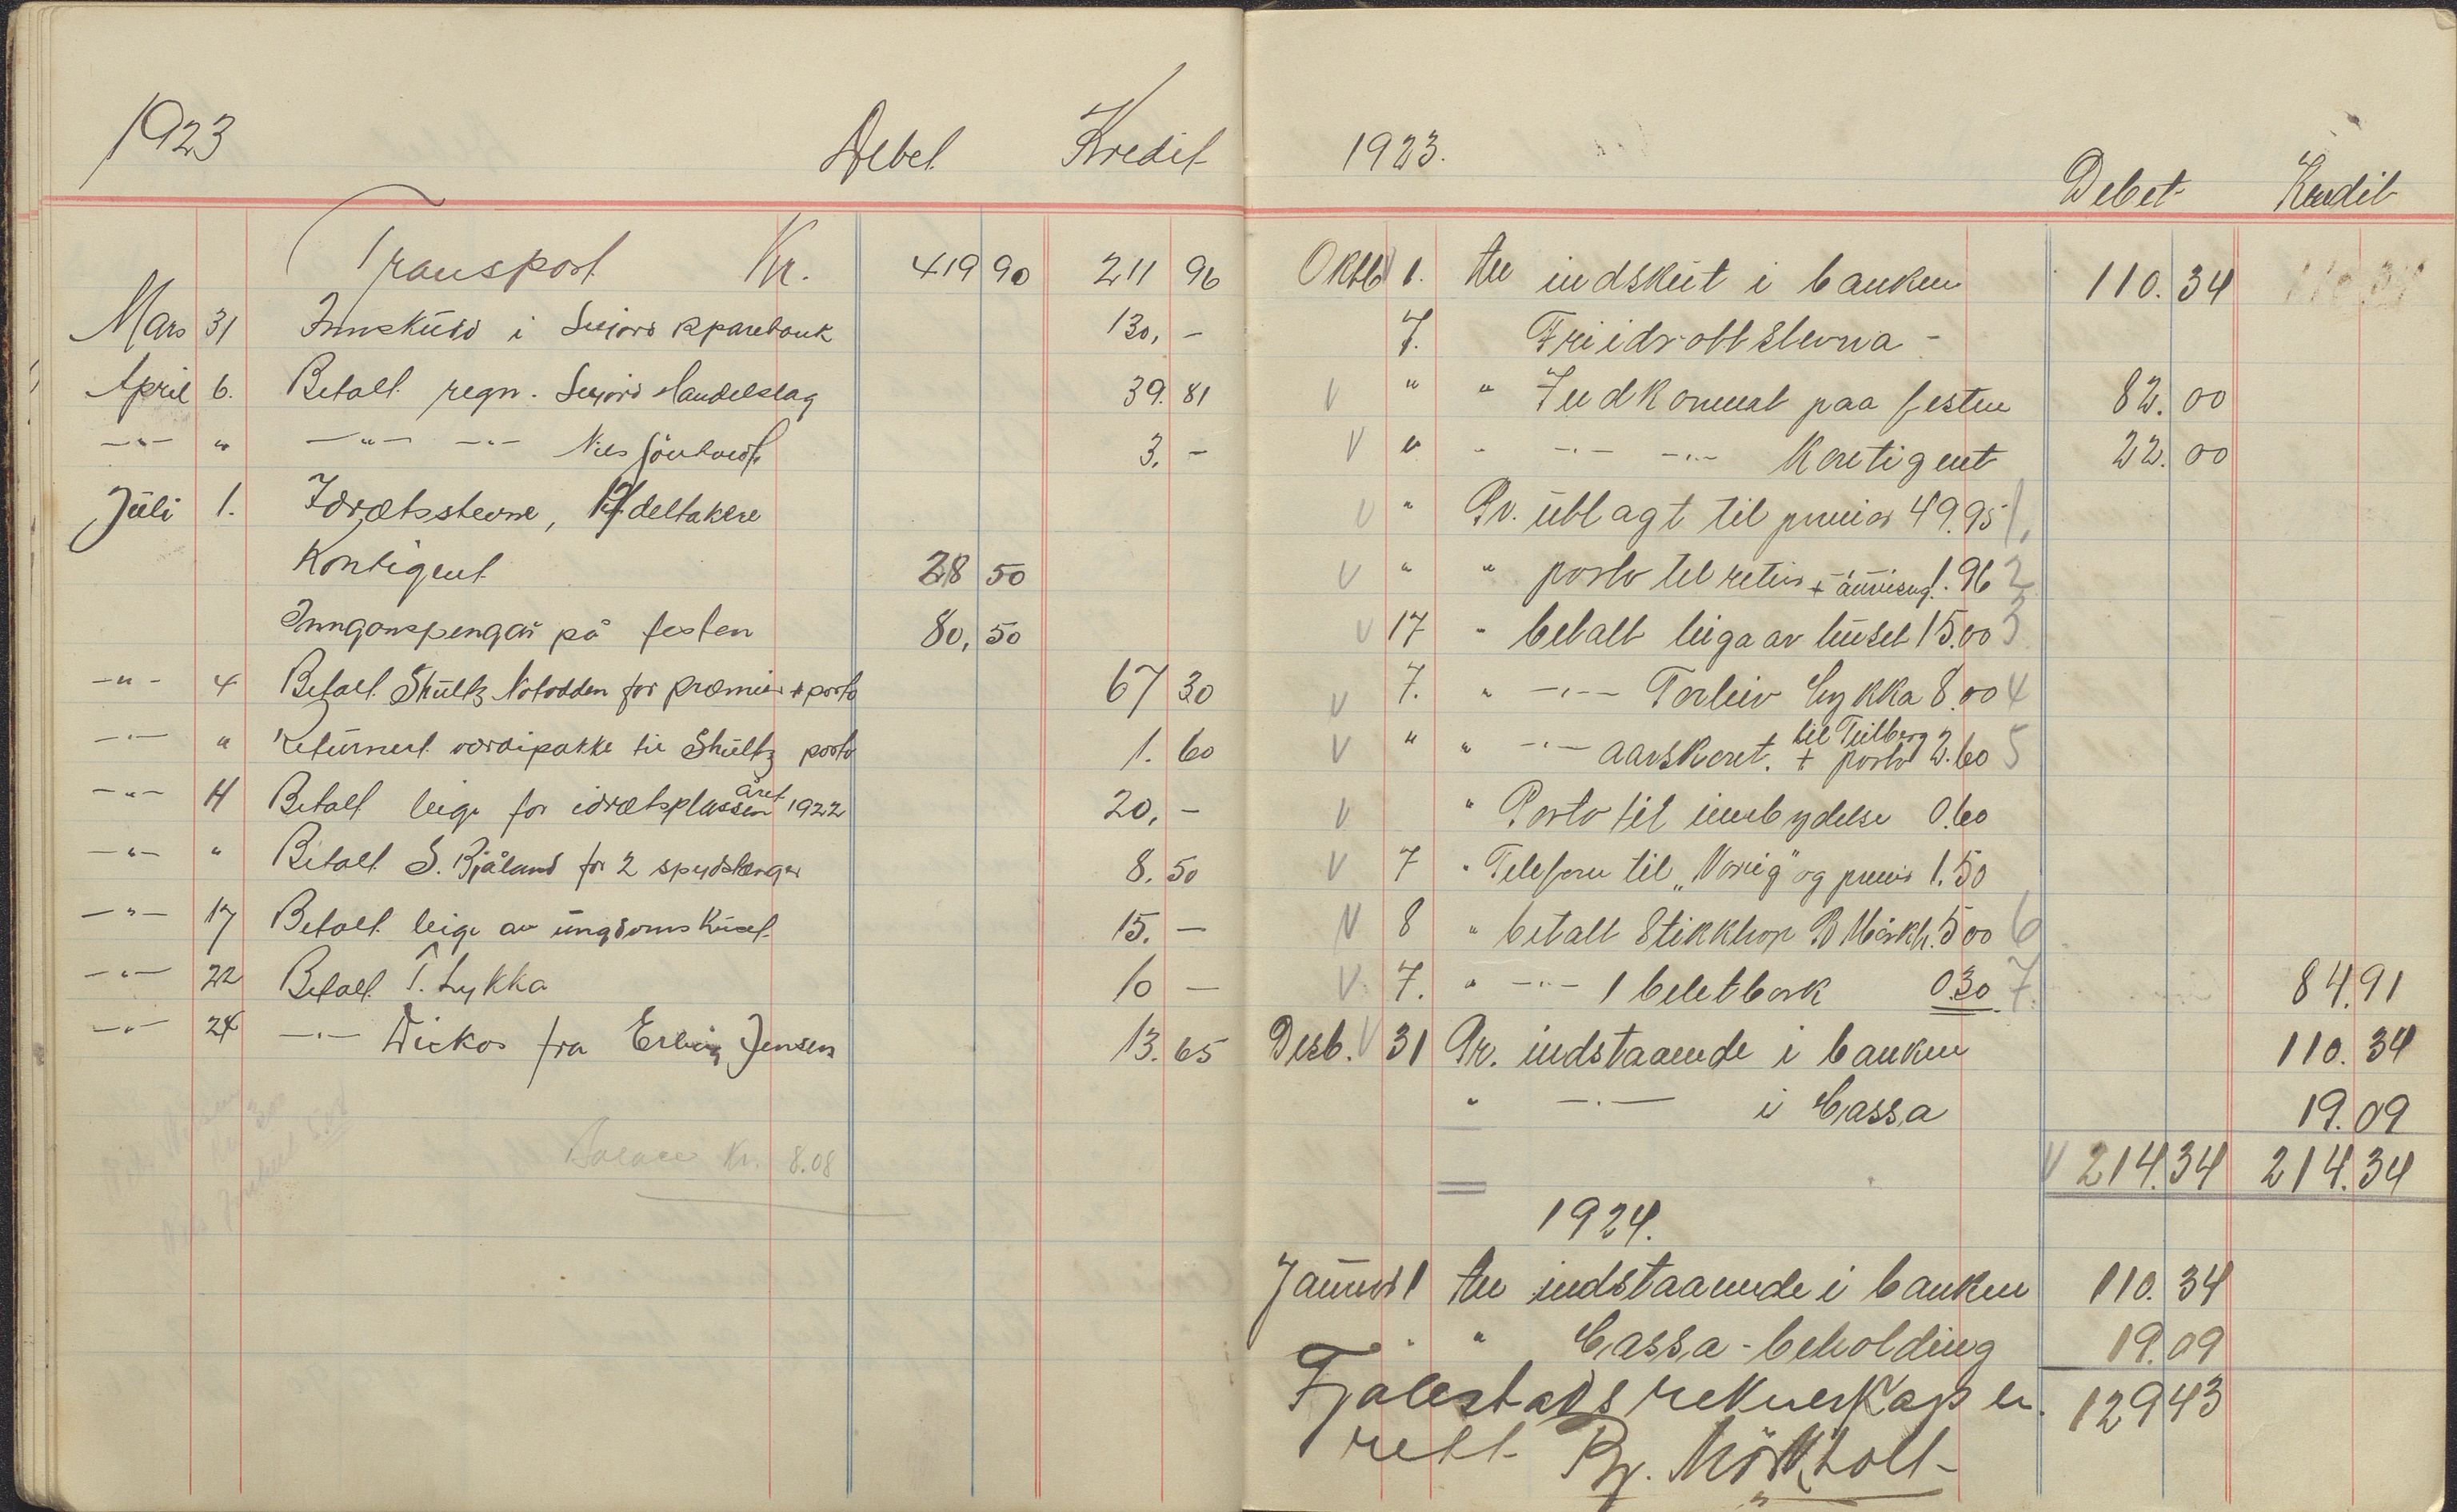 1923 Debet Kredit
Transport Kr. 419 90 211 96
Mars 31 Innskudd i Seljord sparebank 130, -
April 6. Betalt regn. Seljord Handelslag 39. 81
-"- " -"- -"- Nils 3, -
Juli 1. Idrætsstevne, 17 deltakere
Kontigent 28 50
Inngangspengar på festen 80, 50
-"- 4 Betalt Shultz Notodden for præmier + porto 67 30
-"- " Returnert værdipakke til Shultz porto 1. 60
-"- 14 Betalt leige for idrætsplassen året 1922 20, -
-"- " Betalt S. Bjåland for 2 spydstænger 8, 50
-"- 17 Betalt leige av ungdomshuset 15. -
-"- 22 Betalt T. Lykka 10 -
-"- 24 -"- Diskos fra Erling Jensen 13. 65
Balance Kr. 8.08
1923. Debet Kredit
Oktb 1. An indskut i banken 110. 34
7. Friidrottstevna -
V " " Indkomest paa festen 82. 00
V " " -"- -"- Kontigent 22. 00
V " Pr. utlagt til premier 49.95 1.
V " " porto til retur + 1.96 2
V 17 " betalt leiga av huset 15.00 3
V 7. " -"- Torleiv Lykka 8.00 4
V " " -"- aarskont. + porto til Teilberg 2.60 5
V " Porto til innbydelse 0.60
V 7 " Telefon til "Varig" og premi 1.50
V 8 " betalt Stikkhop B Mörkh. 5 00 6
V 7. " -"- 1 beletbork 0.30 7. 84.91
Desb. V 31 Pr. indstaaende i banken 110. 34
" -"- i Cassa 19. 09
V 214.34 214.34
1924.
Januar 1 An indstaaende i banken 110. 34
" " Cassa-beholding 19.09
Fjalestads rekneskap er 12943
rett By. Mörkholt